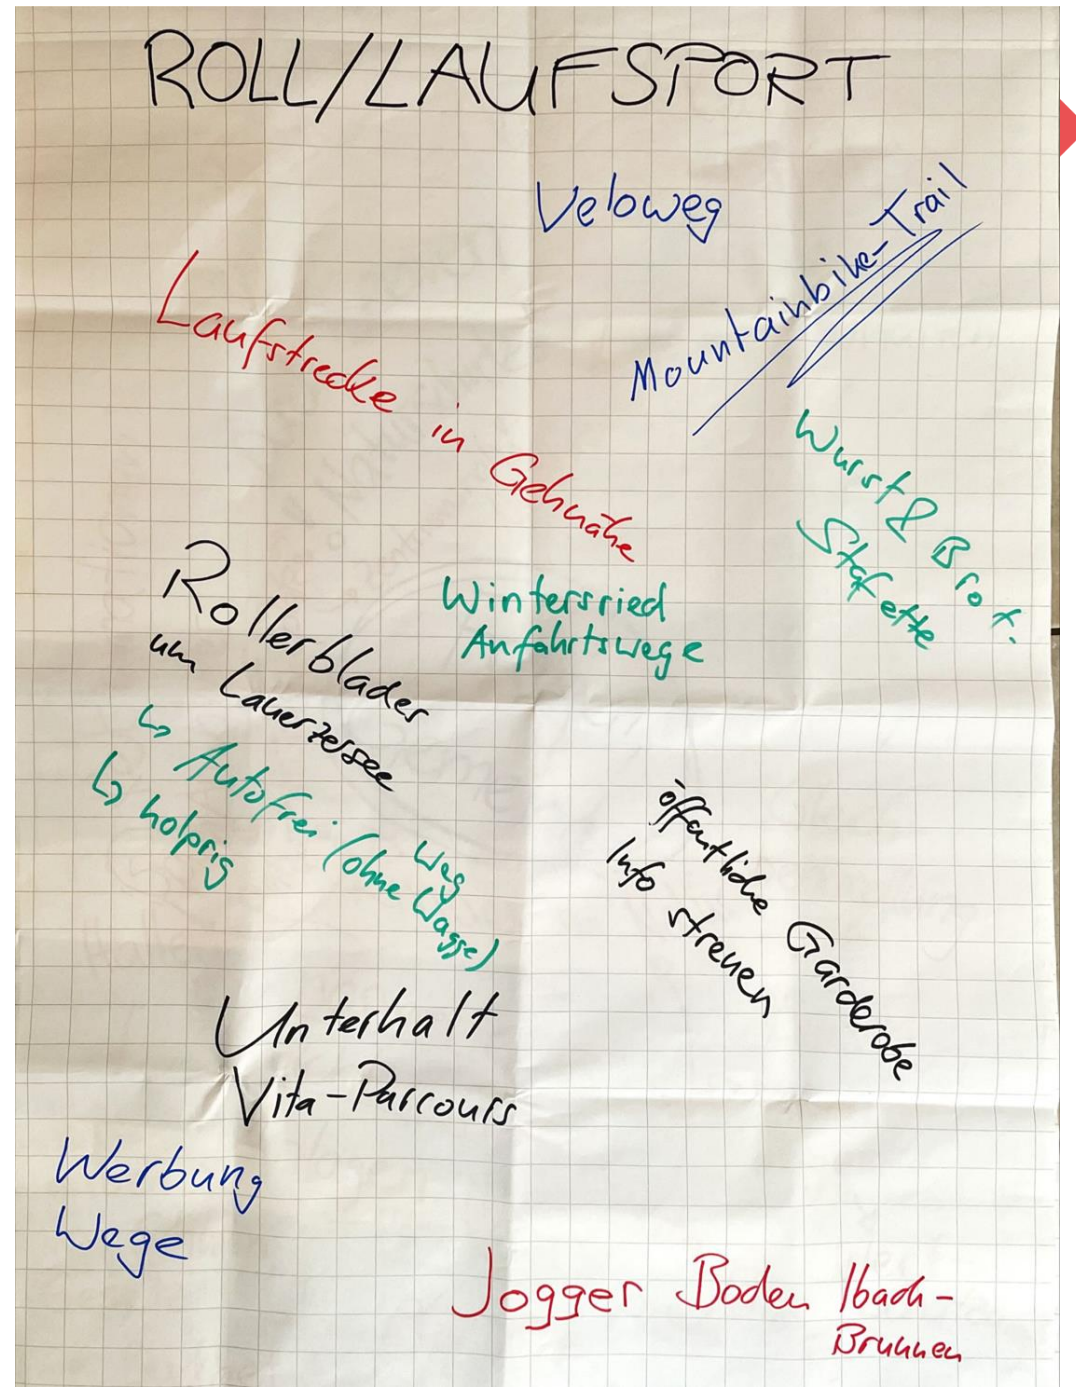 ROLL/LAUFSPORT
Veloweg
Mountainbike-Trail
Laufstrecke in Gehnähe
Wurst & Brot.
Stafette
Wintersried
Anfahrtswege
Rollerblader
um Lauerzersee
↳ Autofrei Weg
(ohne Wägge)
↳ holprig
öffentliche Garderobe
Info streuen
Unterhalt
Vita-Parcours
Werbung
Wege
Jogger Boden Ibach-
Brunnen